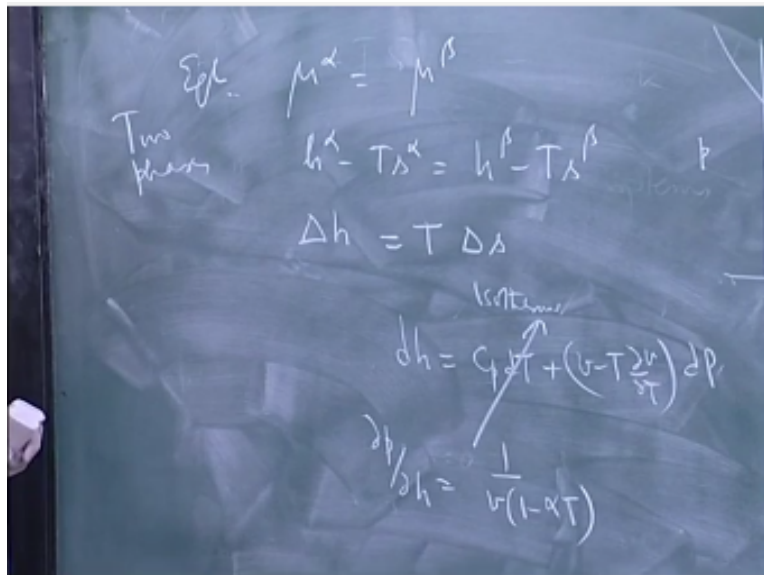 Eql. μ^α = μ^β
Two phases h^α - Ts^α = h^β - Ts^β p
systems
Δh = T Δs
Isotherms
dh = C_p dT + (v - T ∂v/∂T) dp
∂p/∂h = 1/v(1-αT)